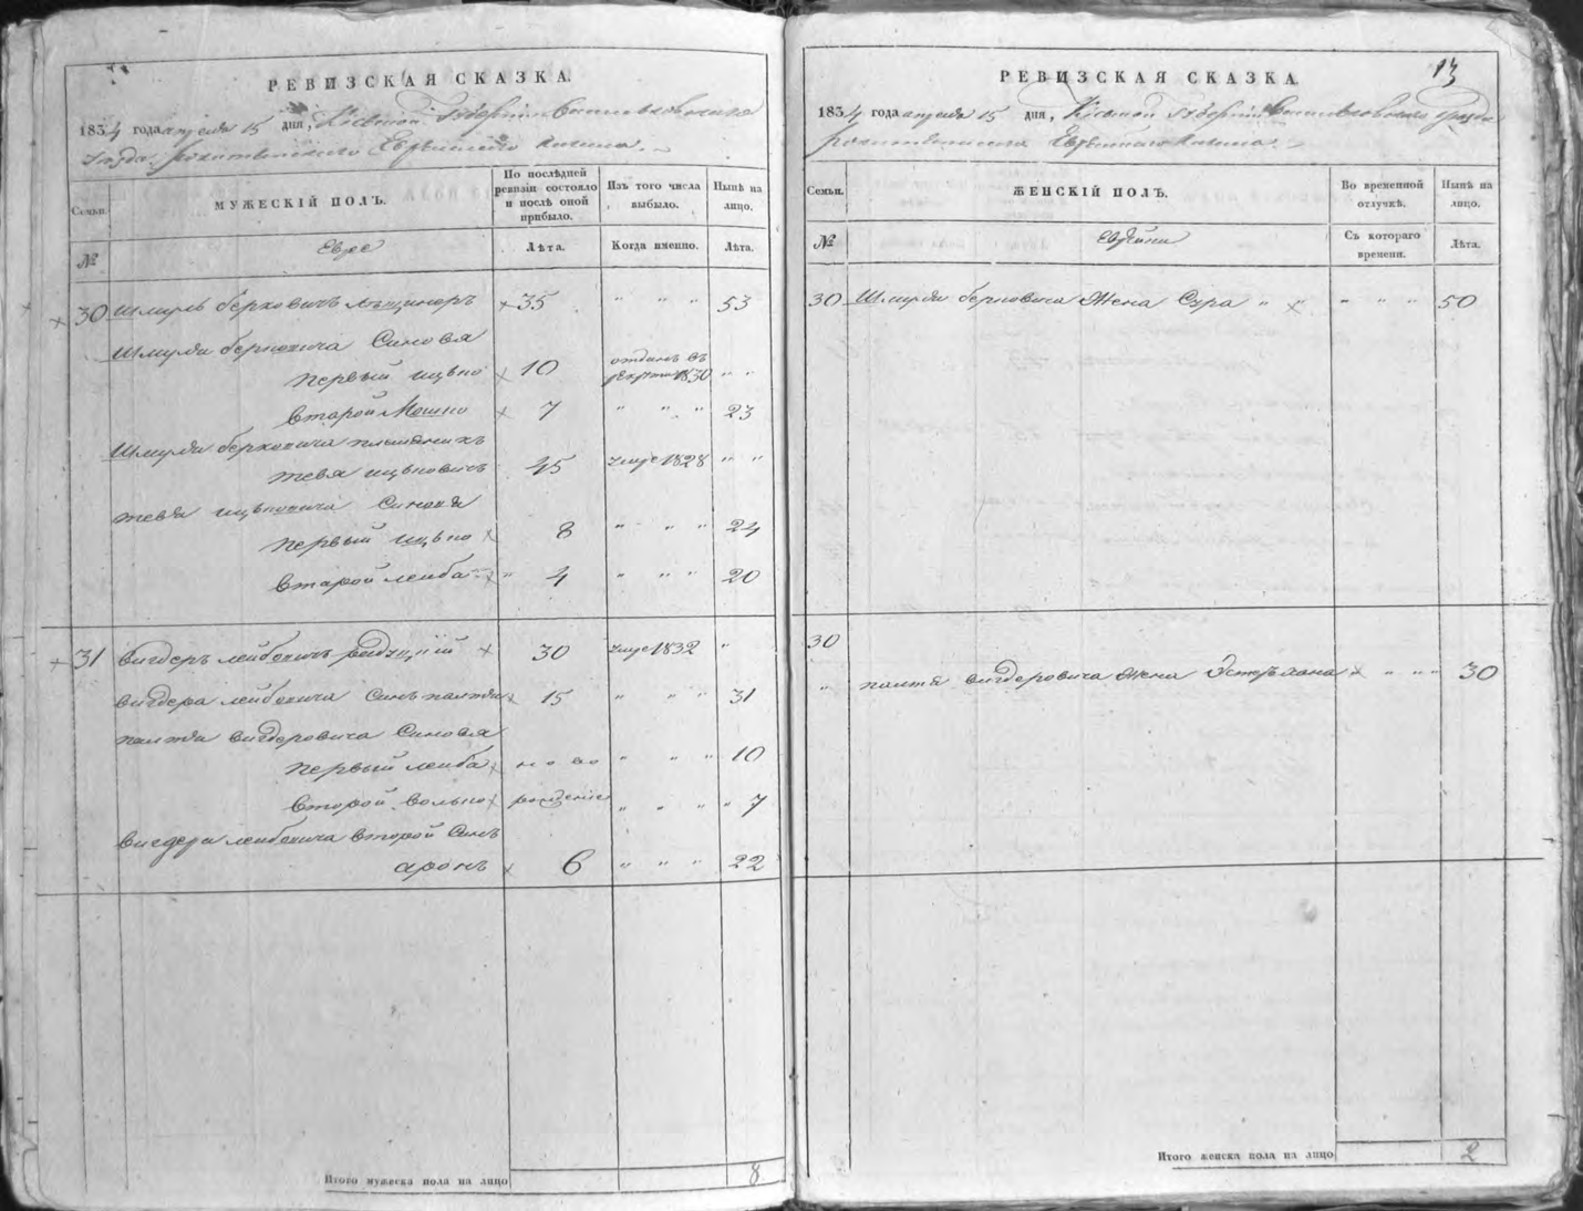 РЕВИЗСКАЯ СКАЗКА.
1834 года апреля 15 дня, Кіевской Губерніи Васильковскаго
уезда, рокитянскаго Еврейскаго Кагала.
Семьи.
МУЖЕСКІЙ ПОЛЪ.
По послѣдней ревизіи состояло и послѣ оной прибыло.
Изъ того числа выбыло.
Нынѣ на лицо.
№
Евреи
Лѣта.
Когда именно.
Лѣта.
30 Шмуль берковичъ 35 " " " 53
Шмуля берковича Сыновя
первый ицько 10 отданъ въ рекруты 1830 " "
второй Мошко 7 " " " 23
Шмуля берковича племяникъ
тевя ицьковичъ 45 умре 1828 " "
тевя ицьковича Синовя
первый ицько 8 " " " 24
второй лейба " 4 " " " 20
31 вигдеръ лейбовичъ 30 умре 1832 "
вигдера лейбовича Синъ палтя 15 " " " 31
палтя вигдеровича Синовя
первый лейба ново " " " 10
второй волько рожденіе " " " " 7
вигдера лейбовича второй Синъ
аронъ 6 " " " 22
Итого мужеска пола на лицо 8
13
РЕВИЗСКАЯ СКАЗКА.
1834 года апреля 15 дня, Кіевской Губерніи Васильковскаго уезда
рокитянскаго Еврейскаго Кагала.
Семьи.
ЖЕНСКІЙ ПОЛЪ.
Во временной отлучкѣ.
Нынѣ на лицо.
№
Еврейки
Съ котораго времени.
Лѣта.
30 Шмуля берковича Жена Сура " " " " " 50
30
" палтя вигдеровича Жена Эстеръ хана " " " 30
Итого женска пола на лицо 2